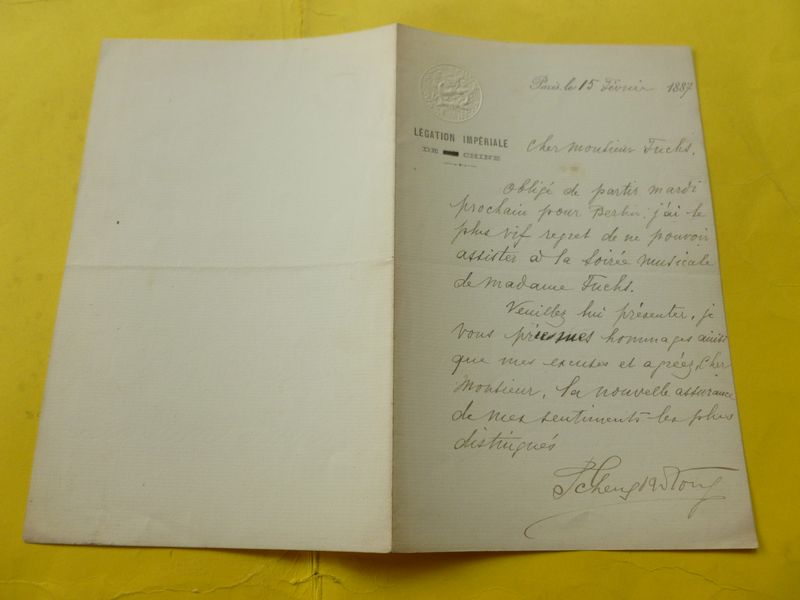 Paris, le 15 Février 1887
LÉGATION IMPÉRIALE
DE CHINE
Cher Monsieur Fuchs.
Obligé de partir mardi
prochain pour Berlin, j'ai le
plus vif regret de ne pouvoir
assister à la Soirée musicale
de Madame Fuchs.
Veuillez lui présenter, je
vous prie mes hommages ainsi
que mes excuses et agréez, Cher
Monsieur, la nouvelle assurance
de mes sentiments les plus
distingués
Tcheng Ki Tong